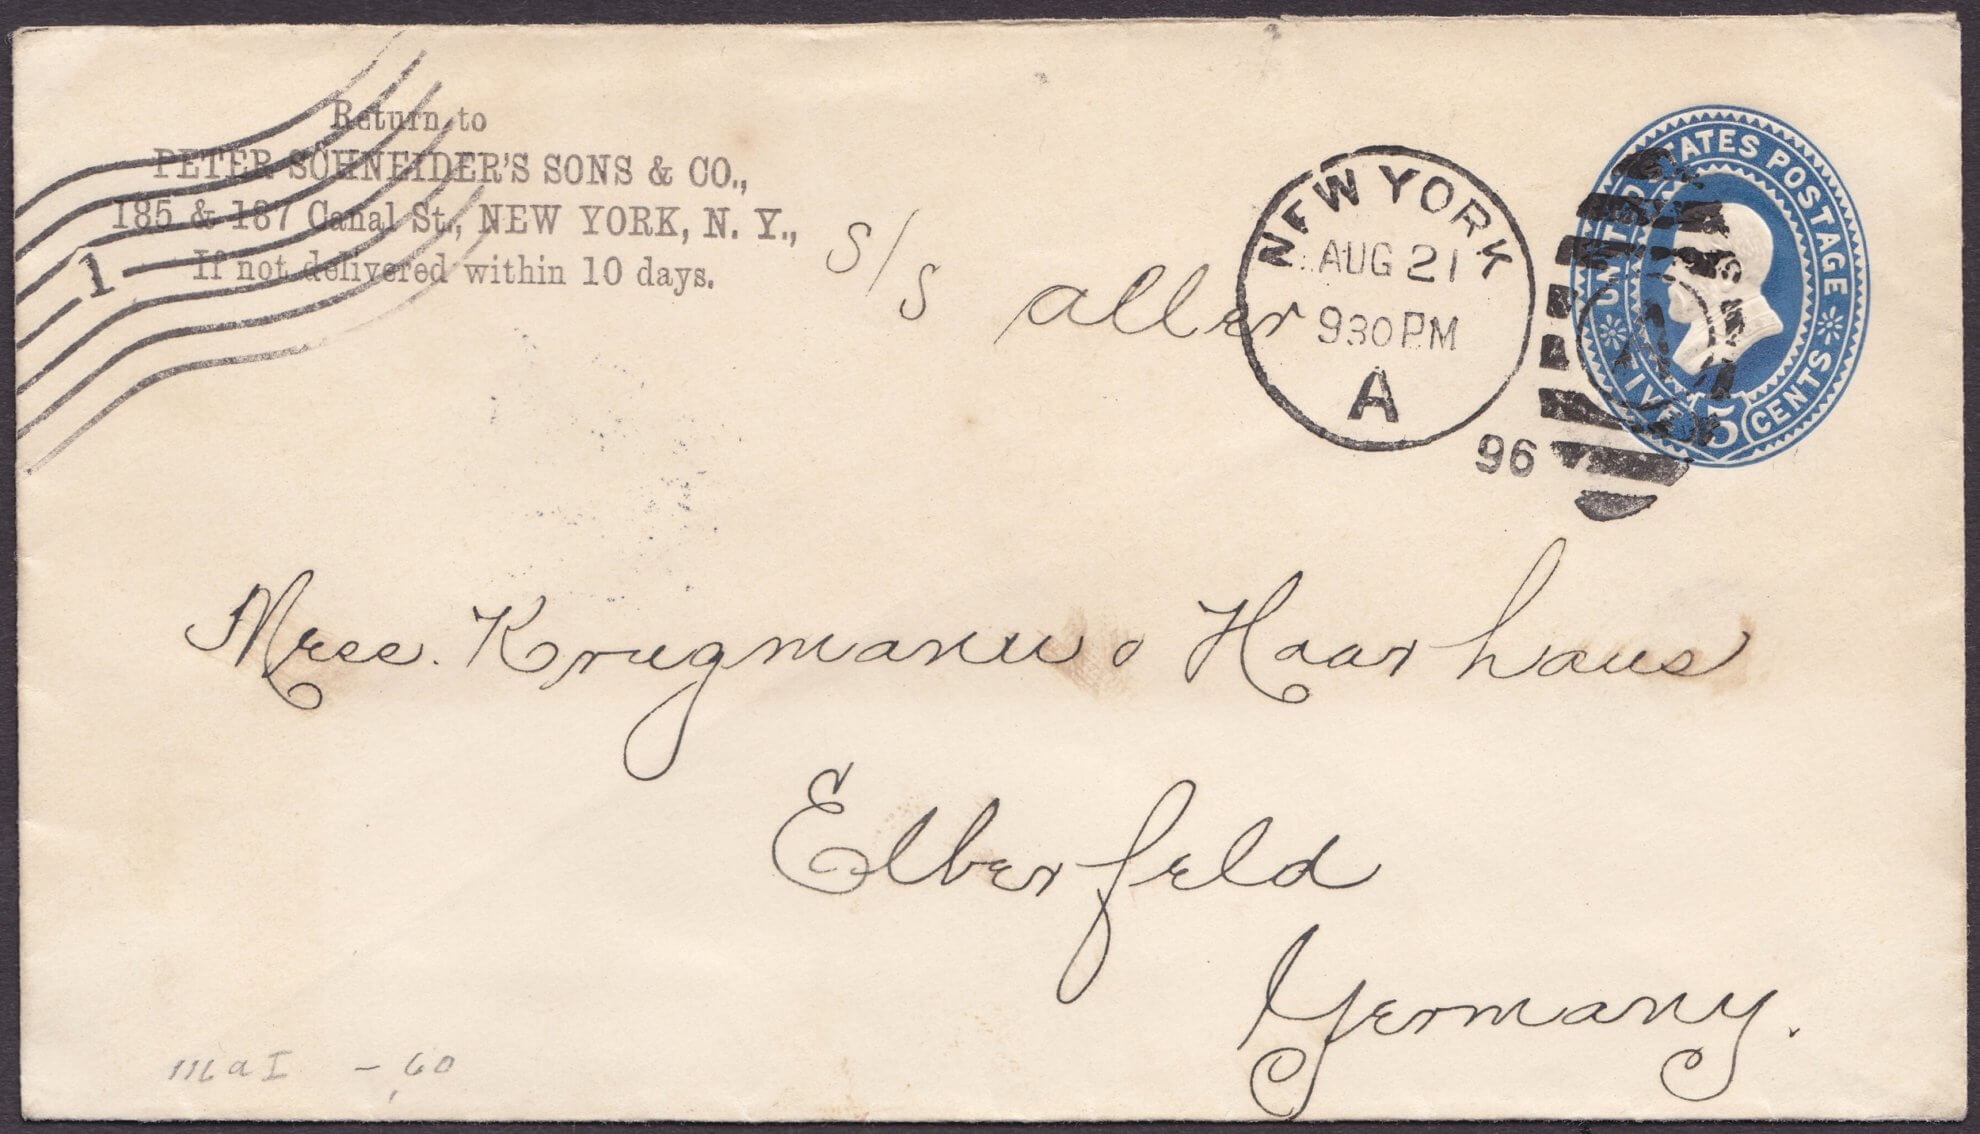 Return to
PETER SCHNEIDER'S SONS & CO.,
185 & 187 Canal St., NEW YORK, N. Y.,
If not delivered within 10 days.
1
S/S Aller
NEW YORK
AUG 21
930PM
A
96
UNITED STATES POSTAGE
FIVE 5 CENTS
Krugmann & Haarhaus
Elberfeld
Germany.
- 60